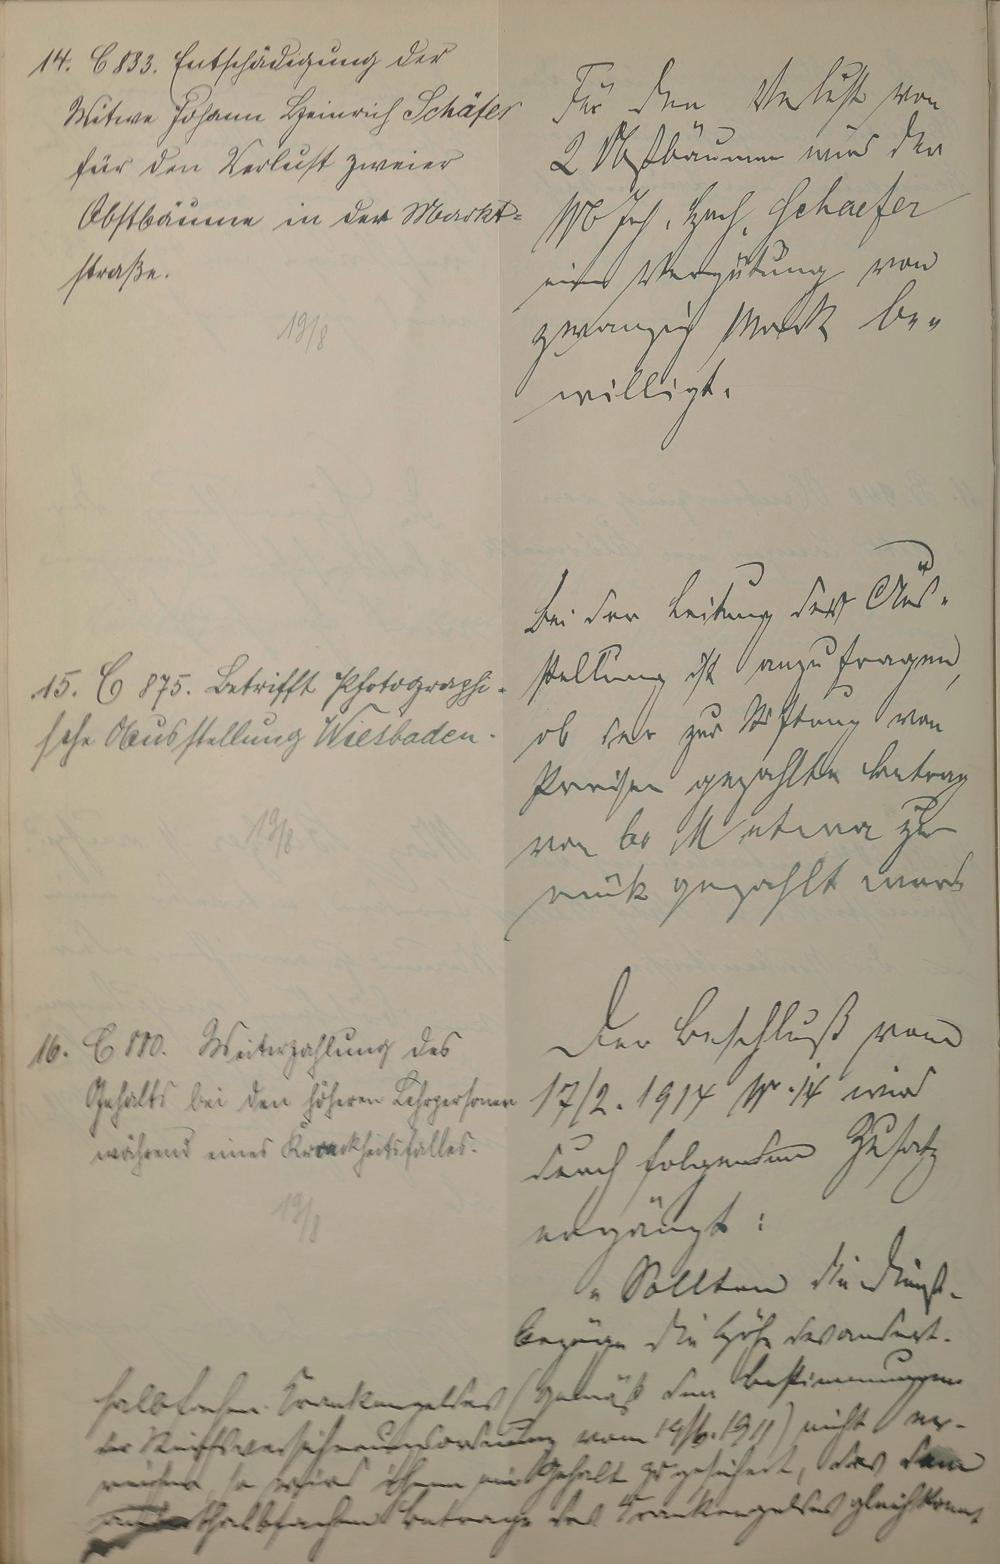 14. C 833. Entschädigung der
Witwe Johann Heinrich Schäfer
für den Verlust zweier
Obstbäume in der Markt-
straße.
19/8
Für den Verlust von
2 Obstbäumen wird der
W Joh. Hch. Schaefer
eine Vergütung von
zwanzig Mark be-
willigt.
15. C 875. Betrifft Photographi-
sche Ausstellung Wiesbaden.
19/8
Bei der Leitung der Aus-
stellung ist anzufragen,
ob der zur Stiftung von
Preisen gezahlte Betrag
von 60 M etwa zu-
rück gezahlt ward
16. C 880. Weiterzahlung des
Gehalts bei den höheren Lehrpersonen
während eines Krankheitsfalles.
19/8
Der Beschluß vom
17/2. 1914 Nr. 14 wird
durch folgenden Zusatz
ergänzt:
"Sollten die Dienst-
bezüge die Höhe des andert-
halbfachen Krankengeldes (gemäß den Bestimmungen
der Reichsversicherungsordnung vom 19/6. 1911) nicht er-
reichen, so wird ihnen ein Gehalt zugesichert, das dem
anderthalbfachen Betrage des Krankengeldes gleichkommt